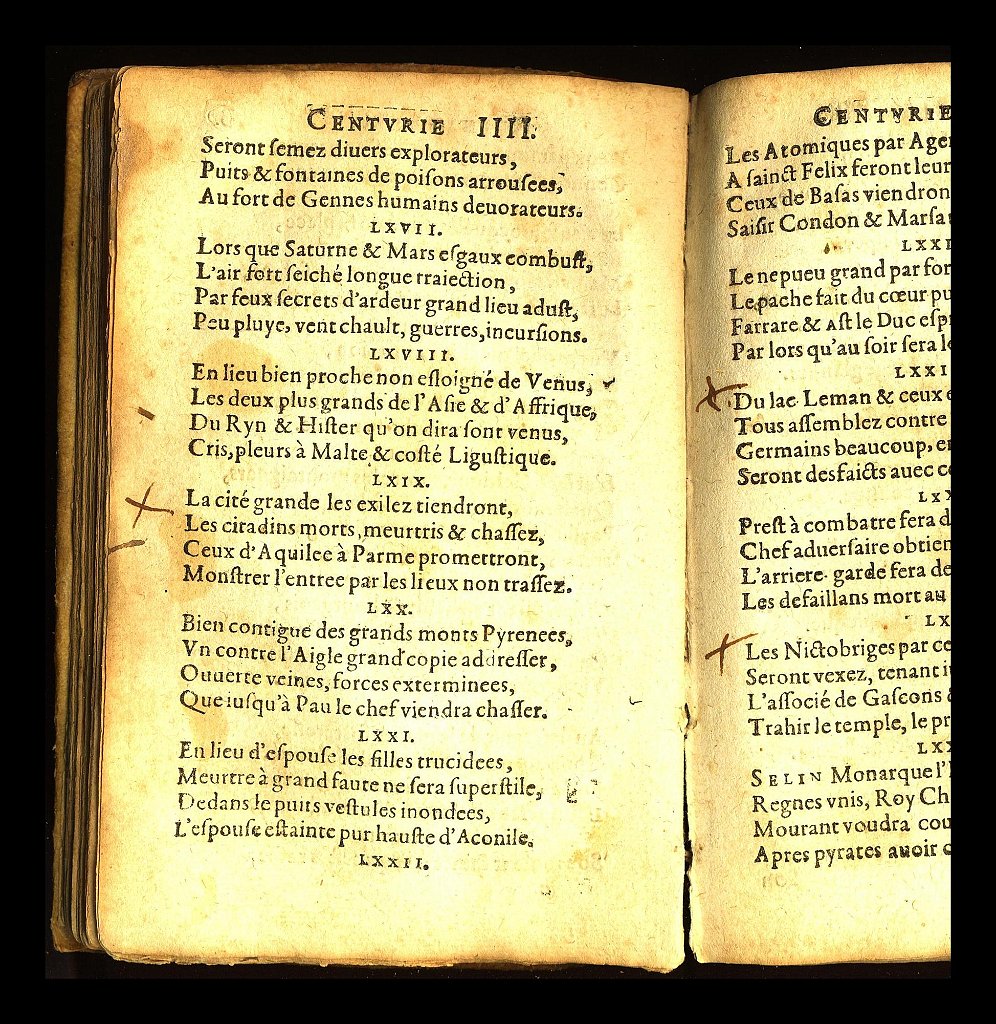 CENTVRIE IIII.
Seront ſemez diuers explorateurs,
Puits & fontaines de poiſons arrouſees,
Au fort de Gennes humains deuorateurs.
LXVII.
Lors que Saturne & Mars eſgaux combuſt,
L'air fort ſeiché longue traiection,
Par feux ſecrets d'ardeur grand lieu aduſt,
Peu pluye, vent chault, guerres, incurſions.
LXVIII.
En lieu bien proche non eſloigné de Venus,
Les deux plus grands de l'Aſie & d'Affrique,
Du Ryn & Hiſter qu'on dira ſont venus,
Cris, pleurs à Malte & coſté Liguſtique.
LXIX.
La cité grande les exilez tiendront,
Les citadins morts, meurtris & chaſſez,
Ceux d'Aquilee à Parme promettront,
Monſtrer l'entree par les lieux non traſſez.
LXX.
Bien contigue des grands monts Pyrenees,
Vn contre l'Aigle grand copie addreſſer,
Ouuerte veines, forces exterminees,
Que iuſqu'à Pau le chef viendra chaſſer.
LXXI.
En lieu d'eſpouſe les filles trucidees,
Meurtre à grand faute ne ſera ſuperſtile,
Dedans le puits veſtules inondees,
L'eſpouſe eſtainte pur hauſte d'Aconile.
LXXII.
CENTVRIE
Les Atomiques par Agen
A ſainct Felix feront leur
Ceux de Baſas viendron
Saiſir Condon & Marſa
LXXI
Le nepueu grand par for
Le pache fait du cœur pu
Farrare & Aſt le Duc eſp
Par lors qu'au ſoir ſera le
LXXI
Du lac Leman & ceux
Tous aſſemblez contre
Germains beaucoup, en
Seront desfaicts auec c
LXX
Preſt à combatre fera d
Chef aduerſaire obtien
L'arriere garde fera de
Les defaillans mort au
LX
Les Nictobriges par ce
Seront vexez, tenant
L'aſſocié de Gaſcons &
Trahir le temple, le pr
LXX
SELIN Monarque l'
Regnes vnis, Roy Ch
Mourant voudra cou
Apres pyrates auoir